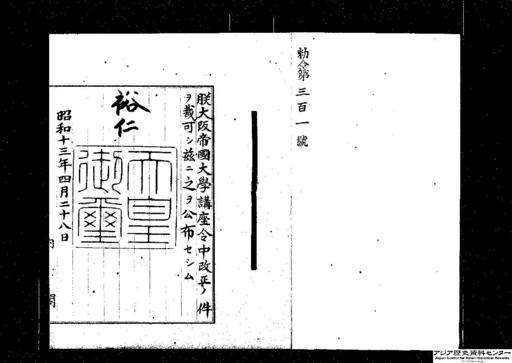 勅令第三百一號
朕大阪帝國大學講座令中改正ノ件
ヲ裁可シ茲ニ之ヲ公布セシム
裕仁
天皇御璽
昭和十三年四月二十八日
内閣
アジア歴史資料センター
Japan Center for Asian Historical Records